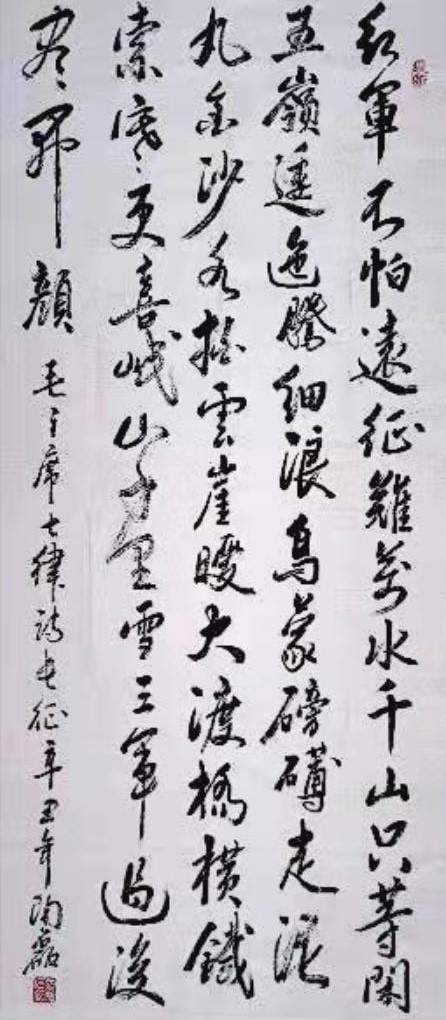 紅軍不怕遠征難萬水千山只等閑
五嶺逶迤騰細浪烏蒙磅礴走泥
丸金沙水拍雲崖暖大渡橋橫鐵
索寒更喜岷山千里雪三軍過後
盡開顏
毛主席七律詩長征辛丑年陶磊